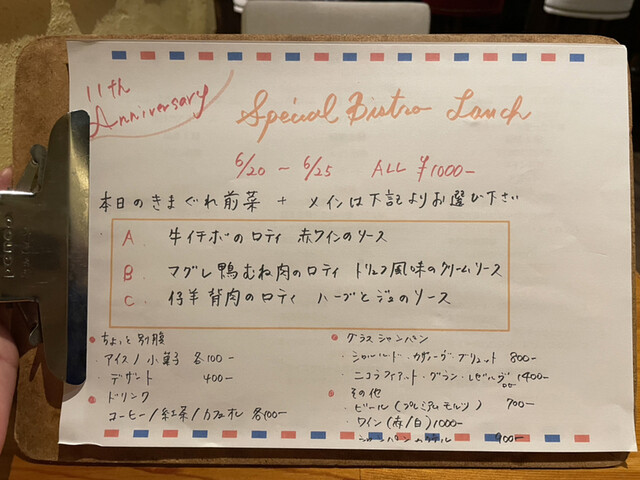 11th
Anniversary
Special Bistro Lunch
6/20 ~ 6/25 ALL ¥1000-
本日のきまぐれ前菜 + メインは下記よりお選び下さい
A 牛イチボのロティ 赤ワインのソース
B マグレ鴨むね肉のロティ トリュフ風味のクリームソース
C 仔羊背肉のロティ ハーブとジュのソース
ちょっと別腹
・アイス/小菓子 各100-
・デザート 400-
ドリンク
コーヒー/紅茶/カフェオレ 各100-
グラスシャンパン
・シャルル・ド・カザノーヴ・ブリュット 800-
・ニコラフィアット・グラン・レゼルヴ 1400-
その他
・ビール(プレミアムモルツ) 700-
・ワイン(赤/白) 1000-
900-